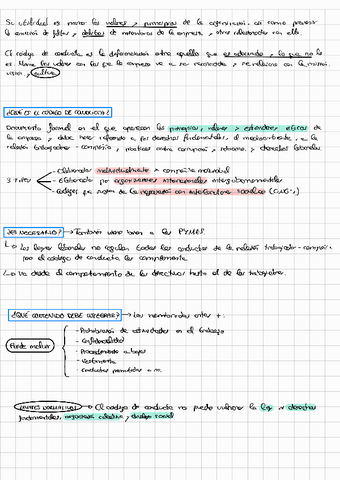 Su utilidad es marcar los valores y principios de la organización, así como prevenir
la comisión de faltas y delitos de miembros de la empresa y otros relacionados con ella.
El código de conducta es la diferenciación entre aquello que es adecuado y lo que no lo
es. Marca los valores con los que la empresa va a ser reconocida y se relaciona con la misión,
visión y cultura
¿QUÉ ES EL CÓDIGO DE CONDUCTA?
Documento formal en el que aparecen los principios, valores y estándares éticos de
la empresa y debe hacer referencia a los derechos fundamentales, al medioambiente, a la
relación trabajadores - compañía, prácticas entre compañ y derechos laborales
3 tipos
Elaborados individualmente x compañía mercantil
Elaborado por organizaciones internacionales intergubernamentales
Códigos que nacen de la negociación con interlocutores sociales
¿ES NECESARIO? → También viene bien a las PYMES
Las leyes laborales no regulan todas las conductas de la relación trabajador-compañía
pero el código de conducta las complementa
va desde el comportamiento de los directivos hasta el de los trabajadores.
¿QUÉ CONTENIDO DEBE INTEGRAR? → Los mencionados antes +:
Puede incluir
- Prohibición de actividades en el trabajo
- Confidencialidad
- Procedimiento a
- Vestimenta
- Conductas permitidas o no
LÍMITES → El código de conducta no puede vulnerar la ley ni derechos
fundamentales, negociación colectiva y diálogo social